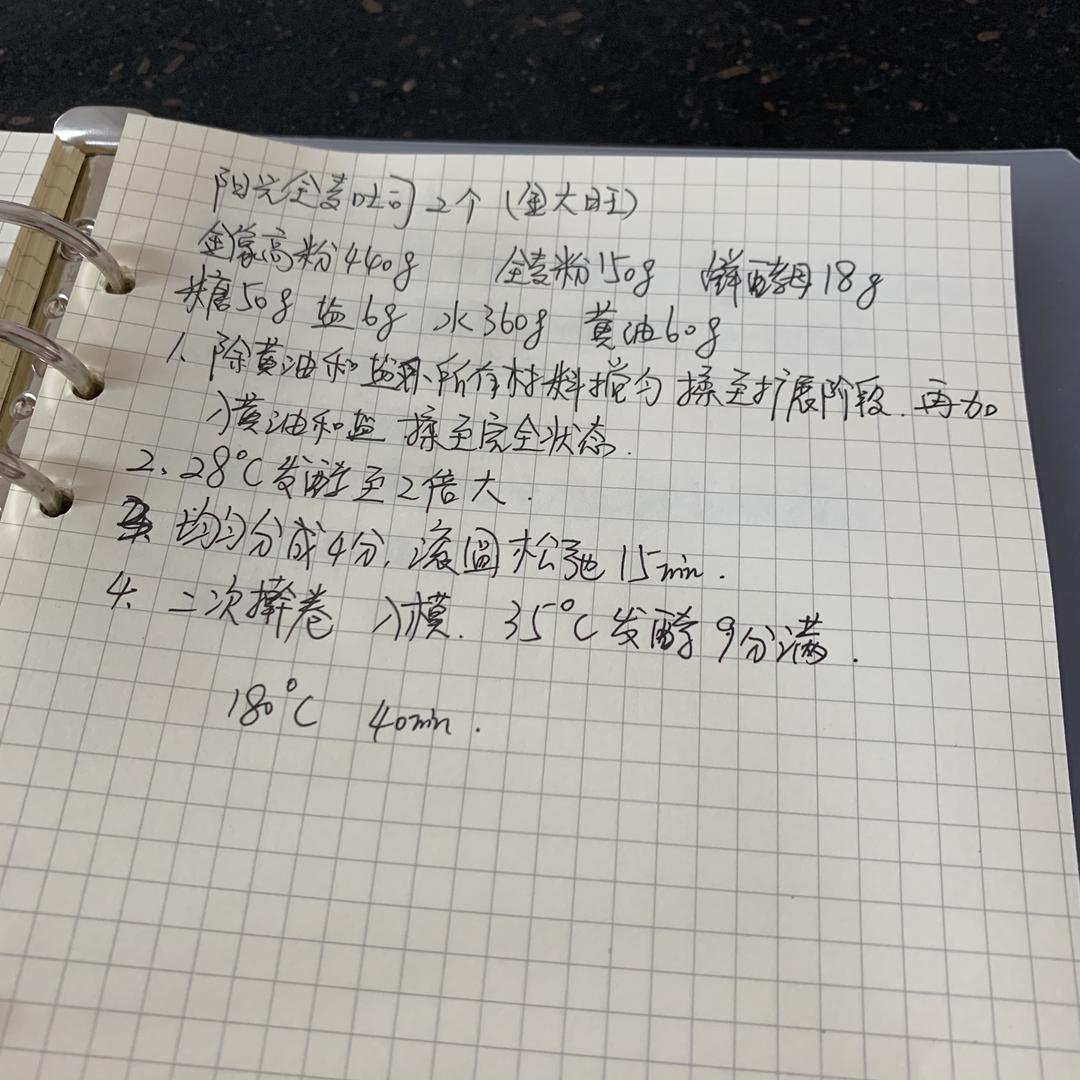 阳光全麦吐司 2个 (金大旺)
金像高粉440g 全麦粉150g 鲜酵母18g
糖50g 盐6g 水360g 黄油60g
1、除黄油和盐外所有材料搅匀 揉至扩展阶段. 再加
入黄油和盐 揉至完全状态.
2、28℃发酵至2倍大.
3、均匀分成4分, 滚圆松弛15min.
4、二次擀卷 入模. 35℃发酵9分满.
180℃ 40min.